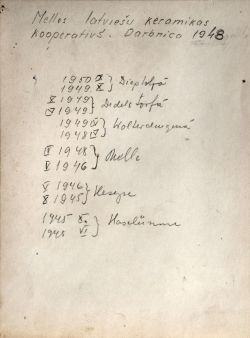 Melles latviešu keramikas
kooperatīvs. Darbnīca 1948
1950 IX
1949 X } Diepholzā
X 1949
IV 1949 }
1949 IV
1948 V }
V 1948
X 1946 } Melle
V 1946
X 1945 } Hesepe
1945 X.
1945 VI } Haselünne